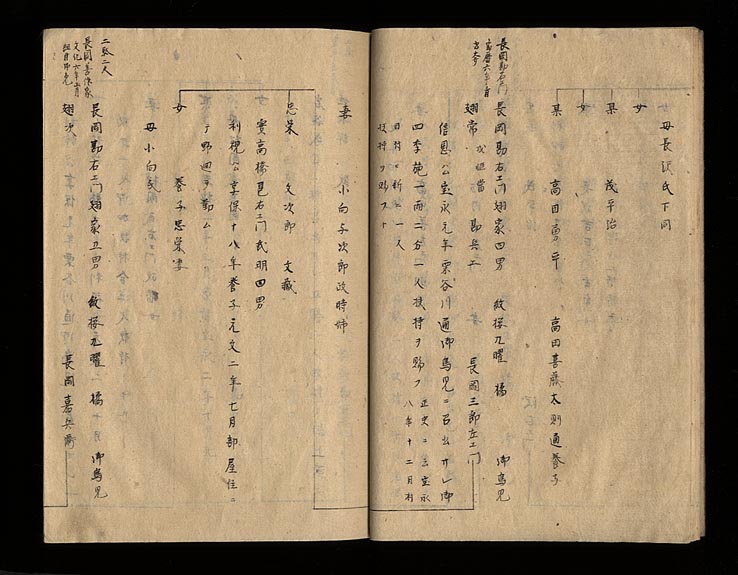 女 母長沢氏下同
某 茂平治
女
某 高田勇平 高田喜藤太則通養子
長岡勘右エ門
長岡勘右エ門翅家四男 紋桜九曜 橘 御鳥見
翅常 次田嘗 勘兵エ 長岡三郎左エ門
信恩公宝永元年栗谷川通御鳥見ニ召出サレ御
四季施一両二分一人扶持ヲ賜フ
正史ニ云宝永
八年十二月村
日村ニ新ニ一人
扶持ヲ賜フト
妻 小向与次郎政時姉
忠栄 文次郎 文蔵
実高橋邑右エ門武明四男
利視公享保十八年養子元文二年七月部屋住ニ
テ野廻ヲ勤ム
女 養子忠栄妻
二駄二人
文化六年
母小向氏
長岡勘右エ門翅家五男 紋桜九曜 橘 御鳥見
翅次 長岡嘉兵衛